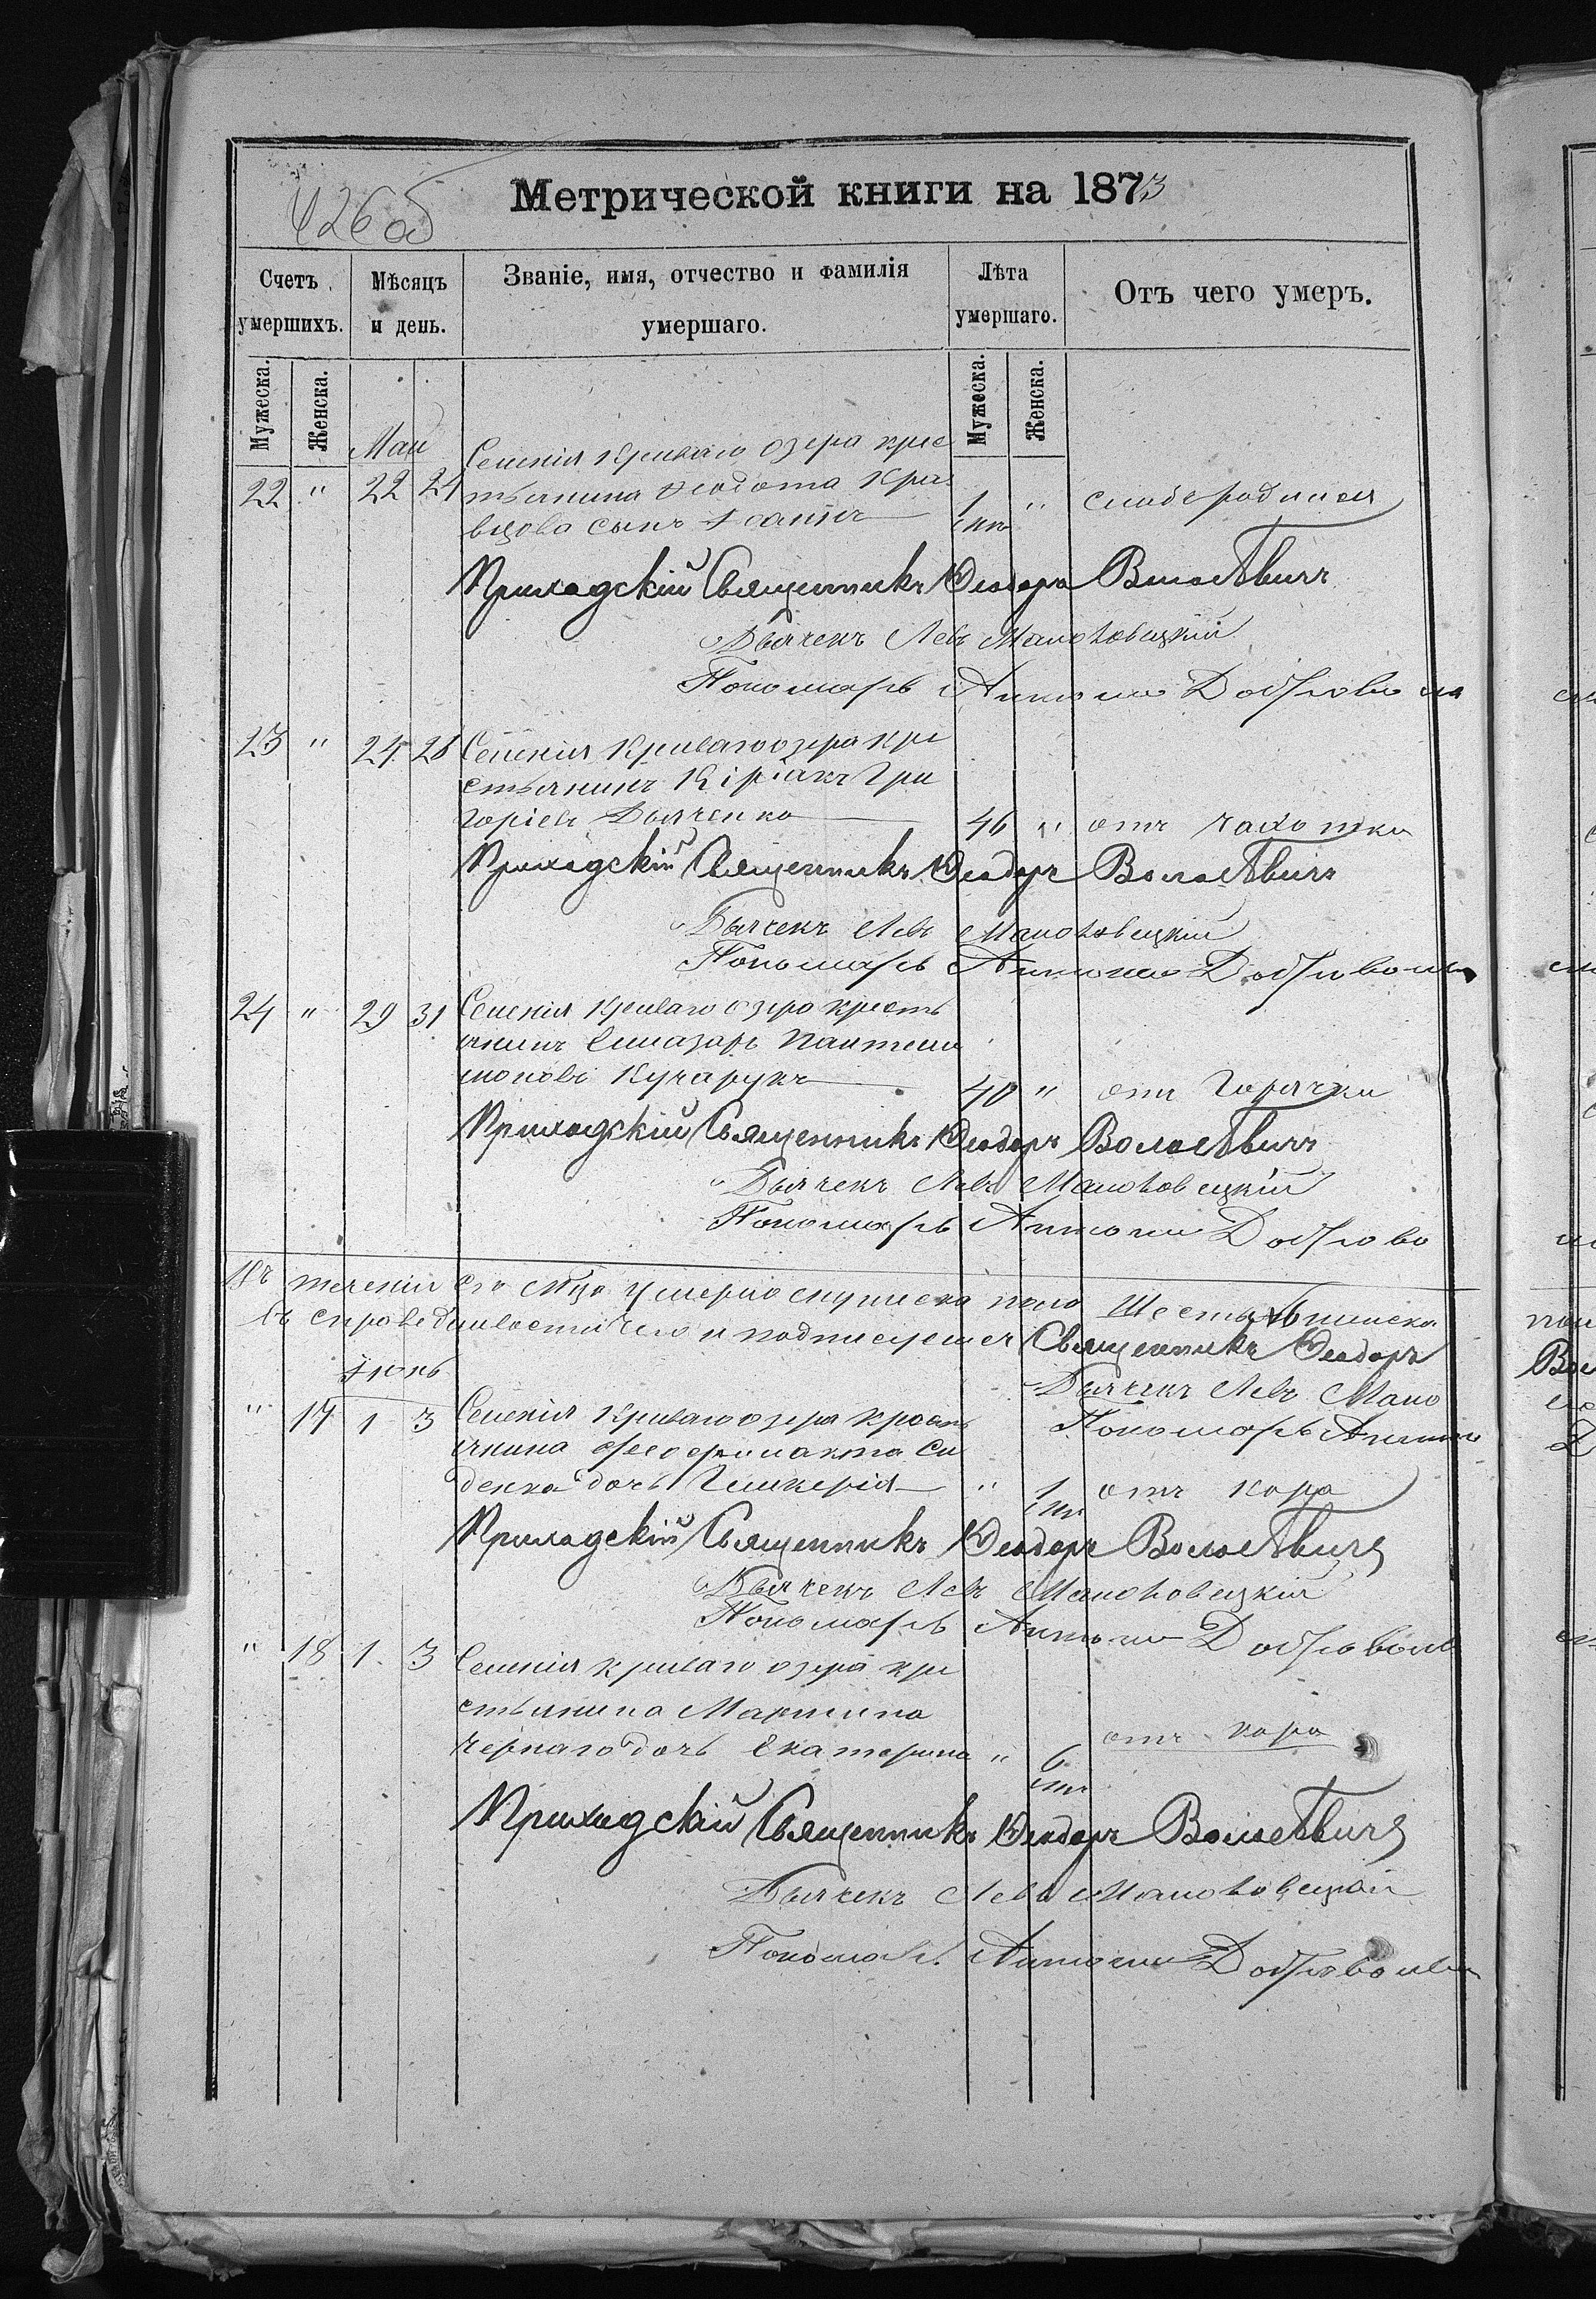 426 об
Метрической книги на 1873
Счетъ умершихъ.
Мѣсяцъ и день.
Званіе, имя, отчество и фамилія умершаго.
Лѣта умершаго.
Отъ чего умеръ.
Мужеска. Женска. Мужеска. Женска.
Май
Селенія Криваго озера кре
22 " 22 24 стьянина Ѳеодота Крав
цова сынъ Іоаннъ 1 " слабе родился
Приходскій Священникъ Ѳеодоръ
Дьячекъ Левъ Малоховецкій
Пономарь Антоній Доброво
23 " 24 26 Селенія Криваго озера кре
стьянинъ Киріакъ Гри
горіевъ Дьяченко 46 " отъ чахотки
Приходскій Священникъ Ѳеодоръ
Дьячекъ Левъ Малоховецкій
Пономарь Антоній Доброволь
24 " 29 31 Селенія Криваго озера кресть
янинъ Елиазаръ Пантели
моновъ Кучарукъ 40 " отъ горячки
Приходскій Священникъ Ѳеодоръ
Дьячекъ Левъ Малоховецкій
Пономарь Антоній Доброво
Въ теченіи сего м-ца умерло мужеска пола Шесть женска
въ справедливости чего и подписуемся Священникъ Ѳеодоръ
Іюнь Дьячекъ Левъ Мало
" 17 1 3 Селенія Криваго озера кресть Пономарь Антоні
янина Си
денка дочь Гликерія " 1 отъ кора
Приходскій Священникъ Ѳеодоръ
Дьячекъ Левъ Малоховецкій
Пономарь Антоній Доброволь
" 18 1 3 Селенія Криваго озера кре
стьянина Мартина
Чернаго дочь Екатерина " 6 отъ кора
Приходскій Священникъ Ѳеодоръ
Дьячекъ Левъ Малоховецкій
Пономарь Антоній Доброволь